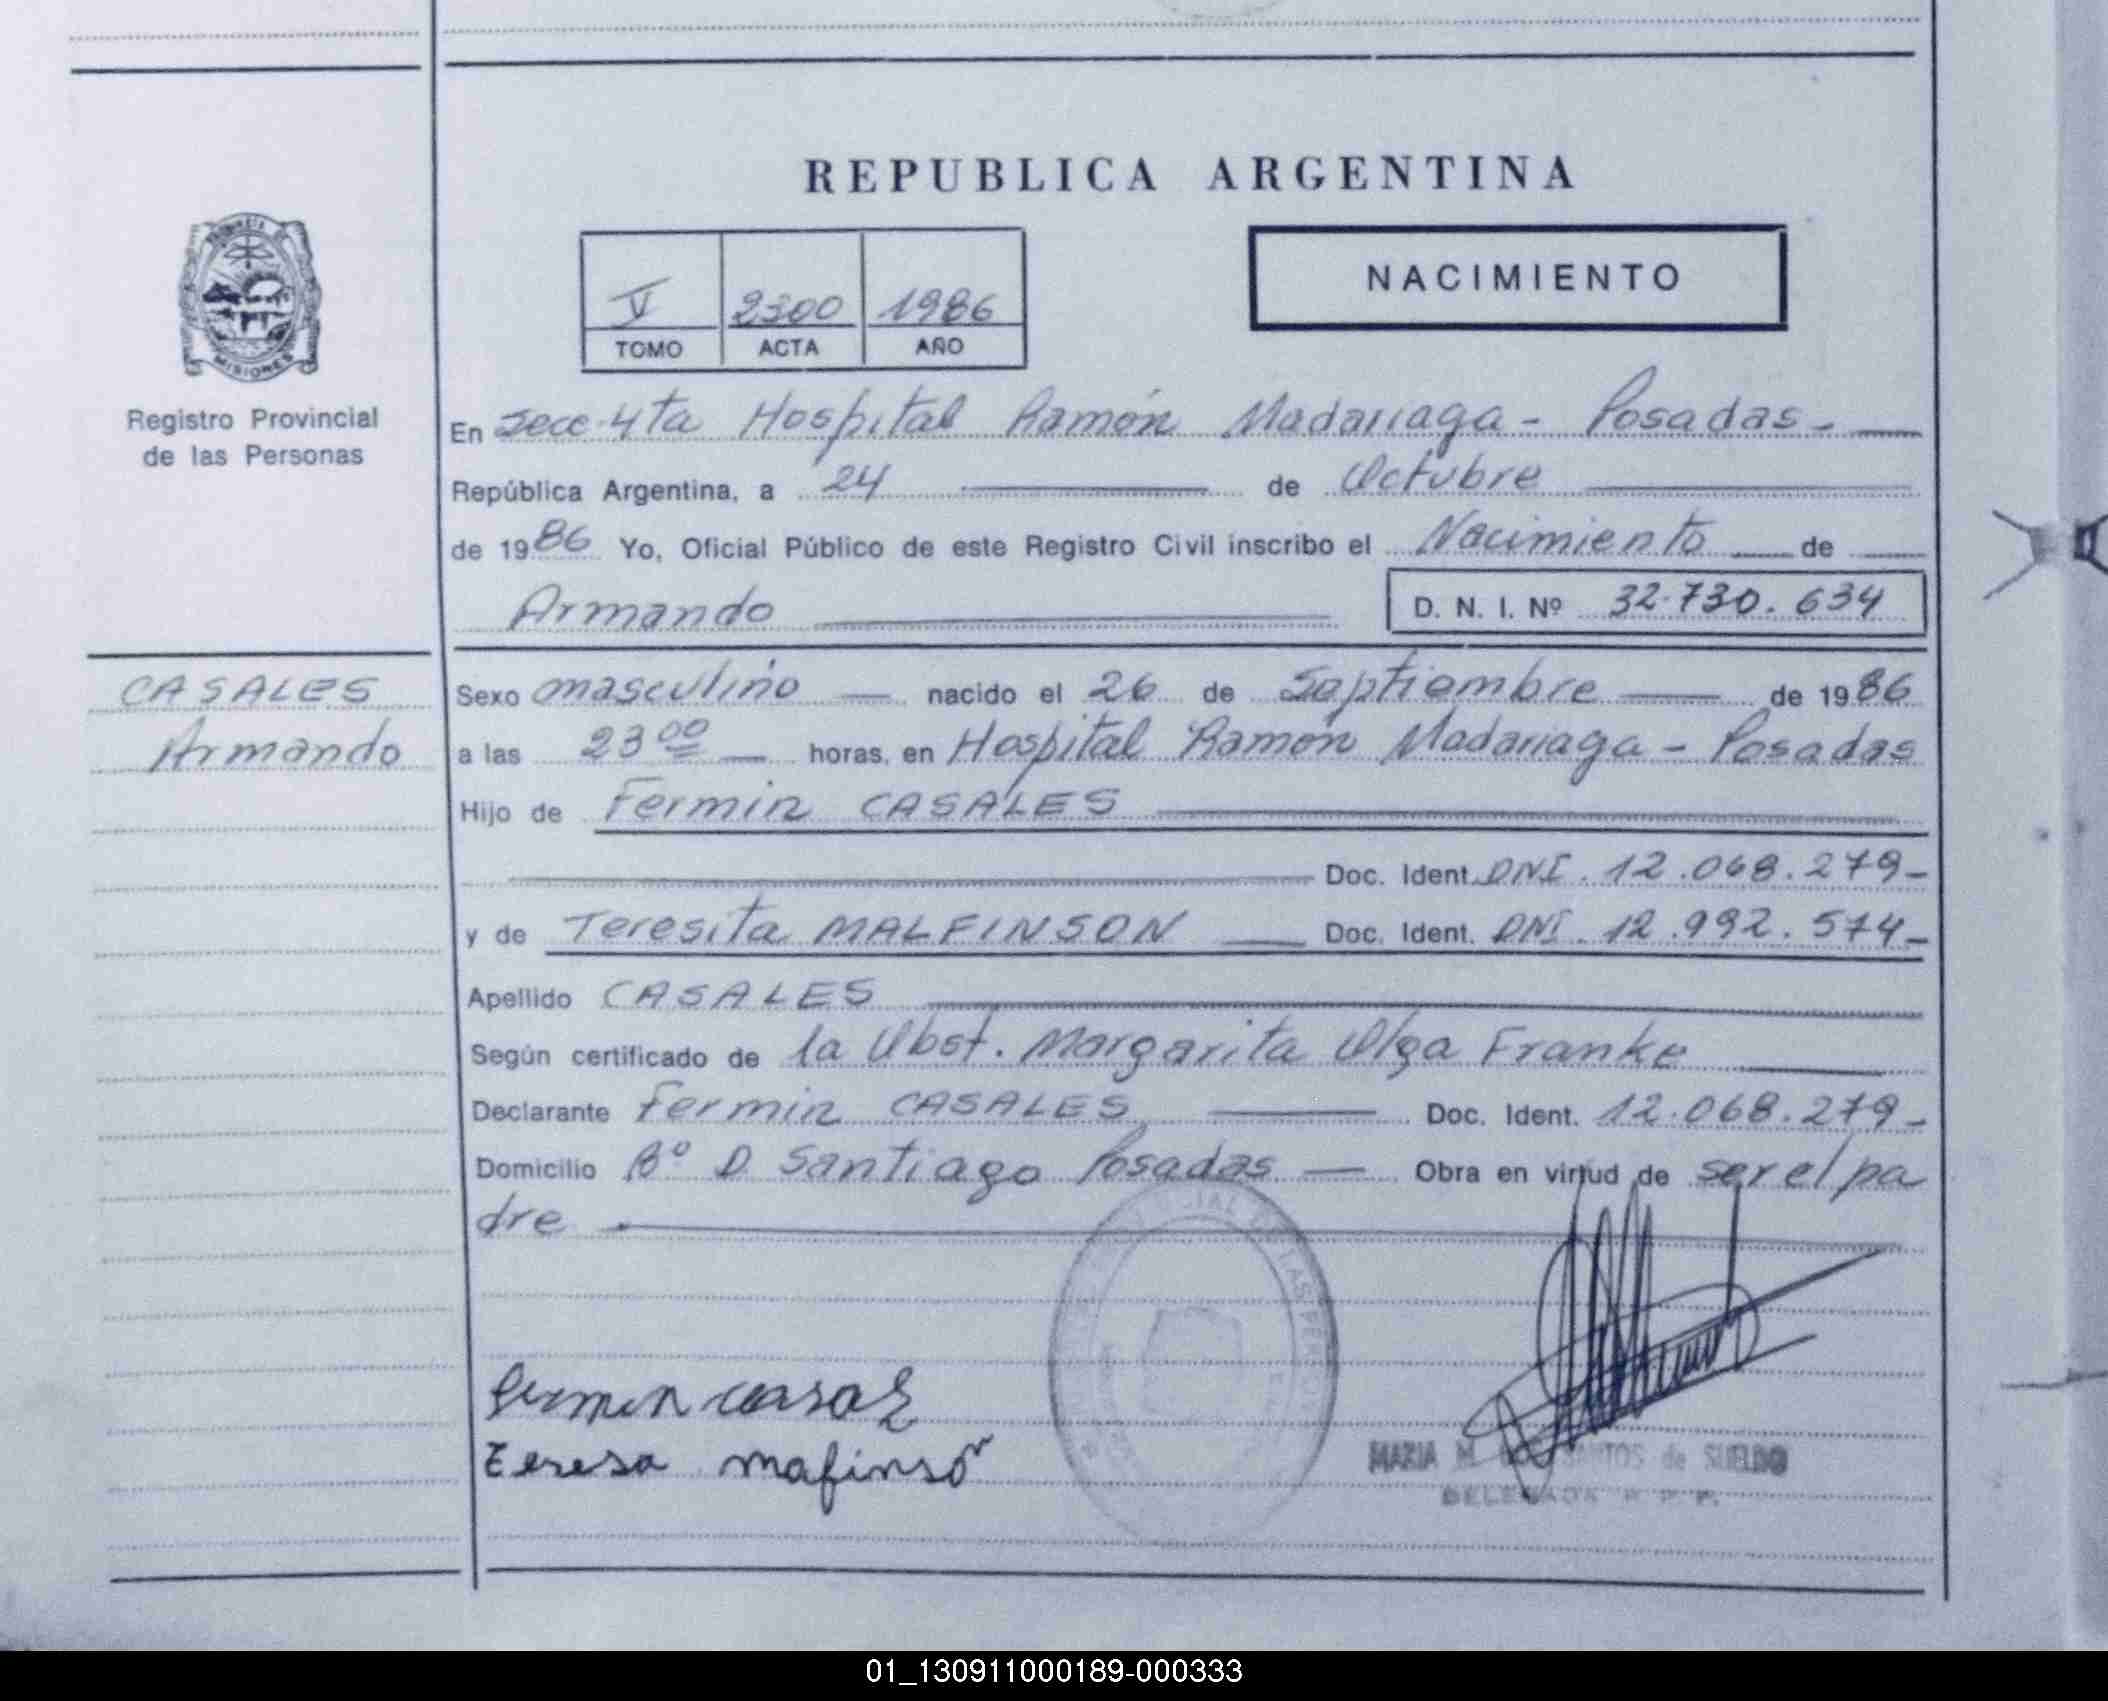 REPUBLICA ARGENTINA
V 2300 1986
TOMO ACTA AÑO
NACIMIENTO
MISIONES
Registro Provincial
de las Personas
En Secc. 4ta Hospital Ramón Madariaga - Posadas -
República Argentina, a 24 de Octubre
de 1986 Yo, Oficial Público de este Registro Civil inscribo el Nacimiento de
Armando D. N. I. Nº 32.730.634
CASALES
Armando
Sexo masculino nacido el 26 de Septiembre de 1986
a las 23 00 horas, en Hospital Ramón Madariaga - Posadas
Hijo de Fermin CASALES
Doc. Ident. DNI. 12.068.279-
y de Teresita MALFINSON Doc. Ident. DNI. 12.992.574-
Apellido CASALES
Según certificado de la Obst. Margarita Olga Franke
Declarante Fermin CASALES Doc. Ident. 12.068.279-
Domicilio Bº D. Santiago Posadas Obra en virtud de ser el pa
dre
Fermin
Teresa mafinso
MARIA M. SANTOS de SUELDO
DELEGADA R. P. P.
01_130911000189-000333